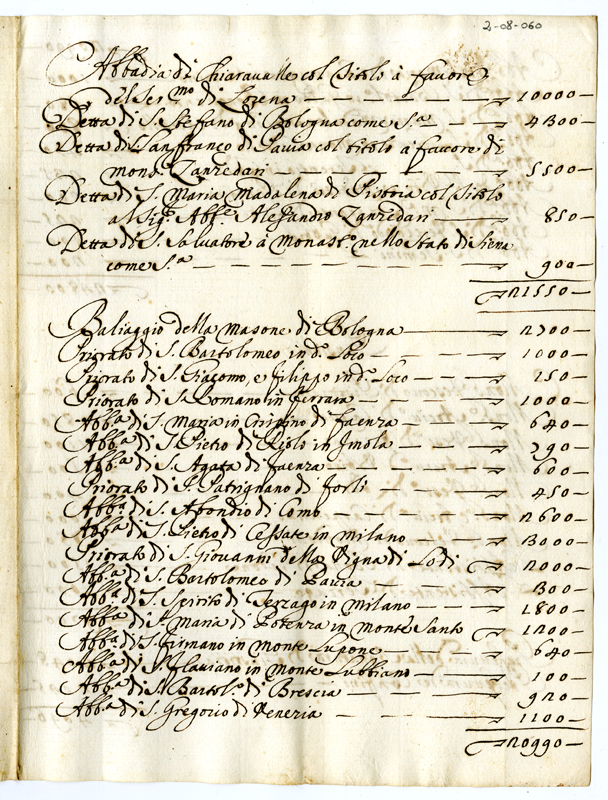 2-08-060
Abbadia di Chiaravalle col titolo à favore
del Ser.mo di Lorena — 10000—
Detta di S. Stefano di Bologna come S.a — 4300—
Detta di S. Lanfranco di Pavia col titolo à favore di
Mons. Zanzedari — 5500—
Detta di S. Maria Madalena di Pistoia col titolo
al Sig. Abb.e Alessandro Zanzedari — 850—
Detta di S. Salvatore à Monast.o nello Stato di Siena
come S.a — 900—
21550—
Baliaggio della Masone di Bologna — 2700—
Priorato di S. Bartolomeo in d.o Loco — 1000—
Priorato di S. Giacomo, e Filippo in d.o Loco — 250—
Priorato di S. Romano in Ferrara — 1000—
Abb.a di S. Maria in Crispino di Faenza — 640—
Abb.a di S. Pietro di in Imola — 290—
Abb.a di S. Agata di Faenza — 600—
Priorato di S. Patrignano di Forlì — 450—
Abb.a di S. Abondio di Como — 2600—
Abb.a di S. Pietro di Cessate in Milano — 3000—
Priorato di S. Giovanni della Vigna di Lodi — 2000—
Abb.a di S. Bartolomeo di Pavia — 300—
Abb.a di S. Spirito di Terzago in Milano — 1800—
Abb.a di S. Maria di Potenza in Monte Santo 1200—
Abb.a di S. Firmano in Monte Lupone — 640—
Abb.a di S. Flaviano in Monte Lubbiano — 100—
Abb.a di S. Bartol.o di Brescia — 920—
Abb.a di S. Gregorio di Venezia — 1100—
20990—